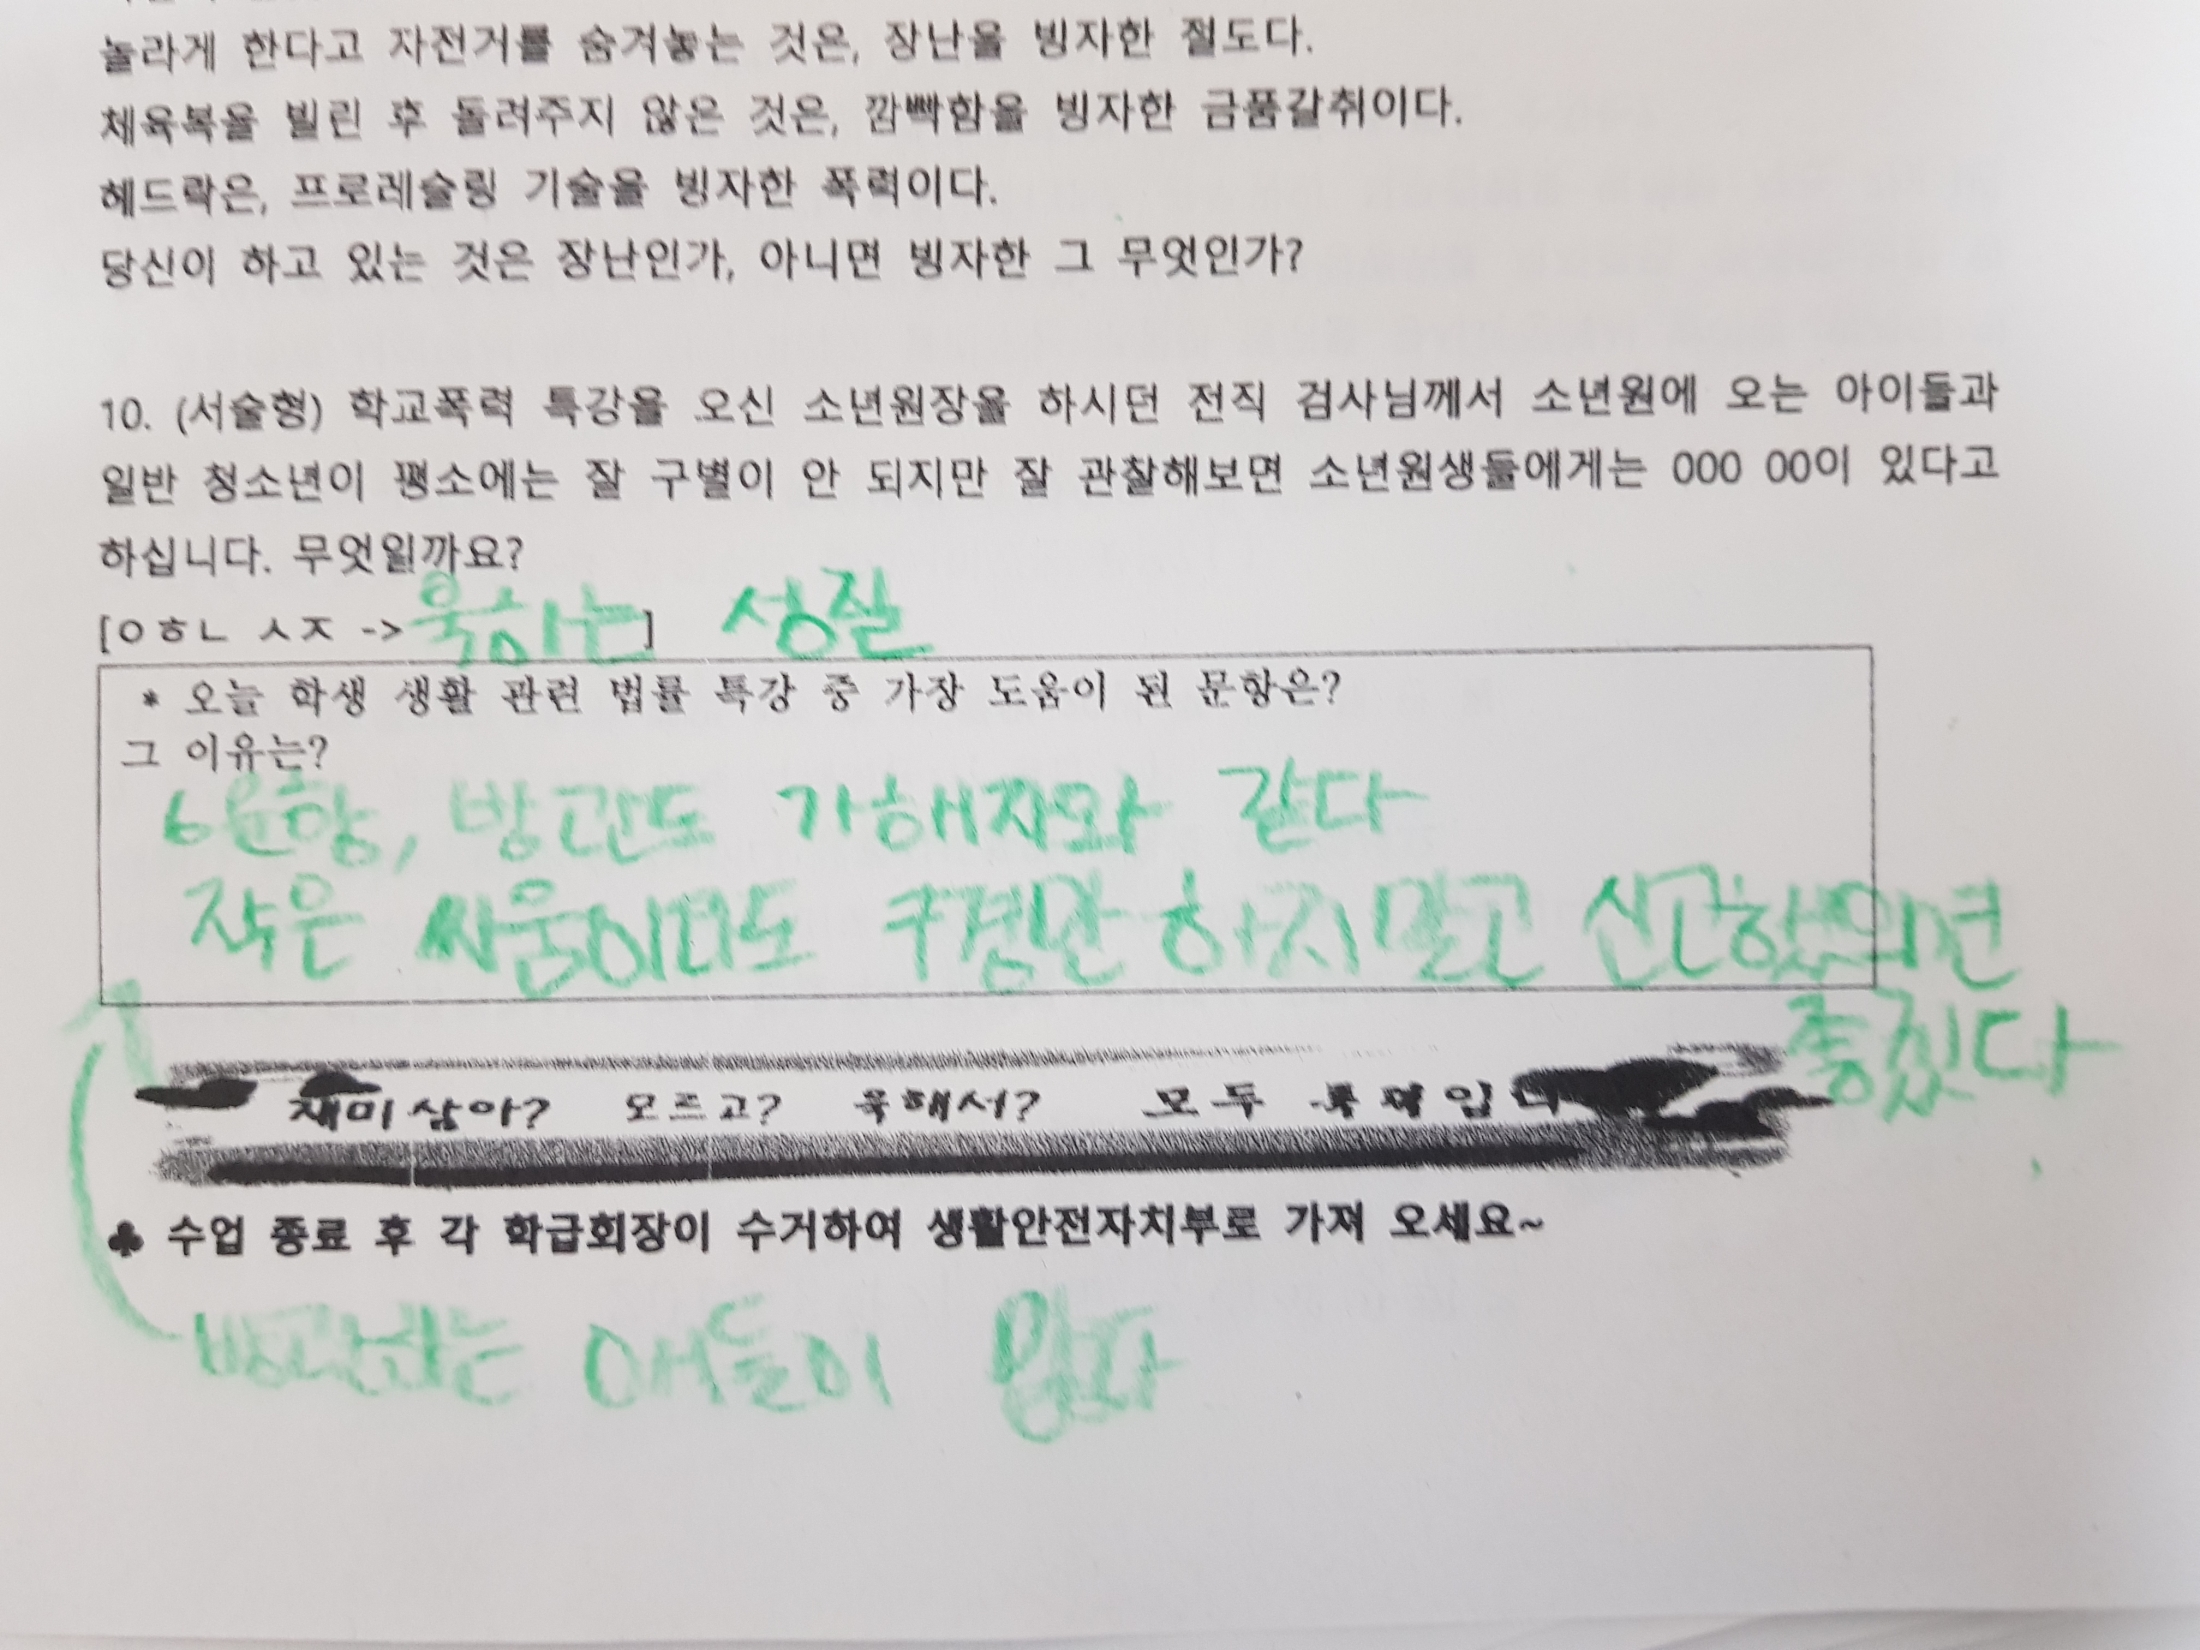 놀라게 한다고 자전거를 숨겨놓는 것은, 장난을 빙자한 절도다.
체육복을 빌린 후 돌려주지 않은 것은, 깜빡함을 빙자한 금품갈취이다.
헤드락은, 프로레슬링 기술을 빙자한 폭력이다.
당신이 하고 있는 것은 장난인가, 아니면 빙자한 그 무엇인가?
10. (서술형) 학교폭력 특강을 오신 소년원장을 하시던 전직 검사님께서 소년원에 오는 아이들과
일반 청소년이 평소에는 잘 구별이 안 되지만 잘 관찰해보면 소년원생들에게는 000 00이 있다고
하십니다. 무엇일까요?
[ㅇㅎㄴ ㅅㅈ -> 욱하는 ] 성질
* 오늘 학생 생활 관련 법률 특강 중 가장 도움이 된 문항은?
그 이유는?
6문항, 방관도 가해자와 같다
작은 싸움이더라도 구경만 하지말고 신고했으면
좋겠다
재미삼아? 모르고? 욱해서? 모두 폭력입니
♣ 수업 종료 후 각 학급회장이 수거하여 생활안전자치부로 가져 오세요~
방관하는 애들이 많다